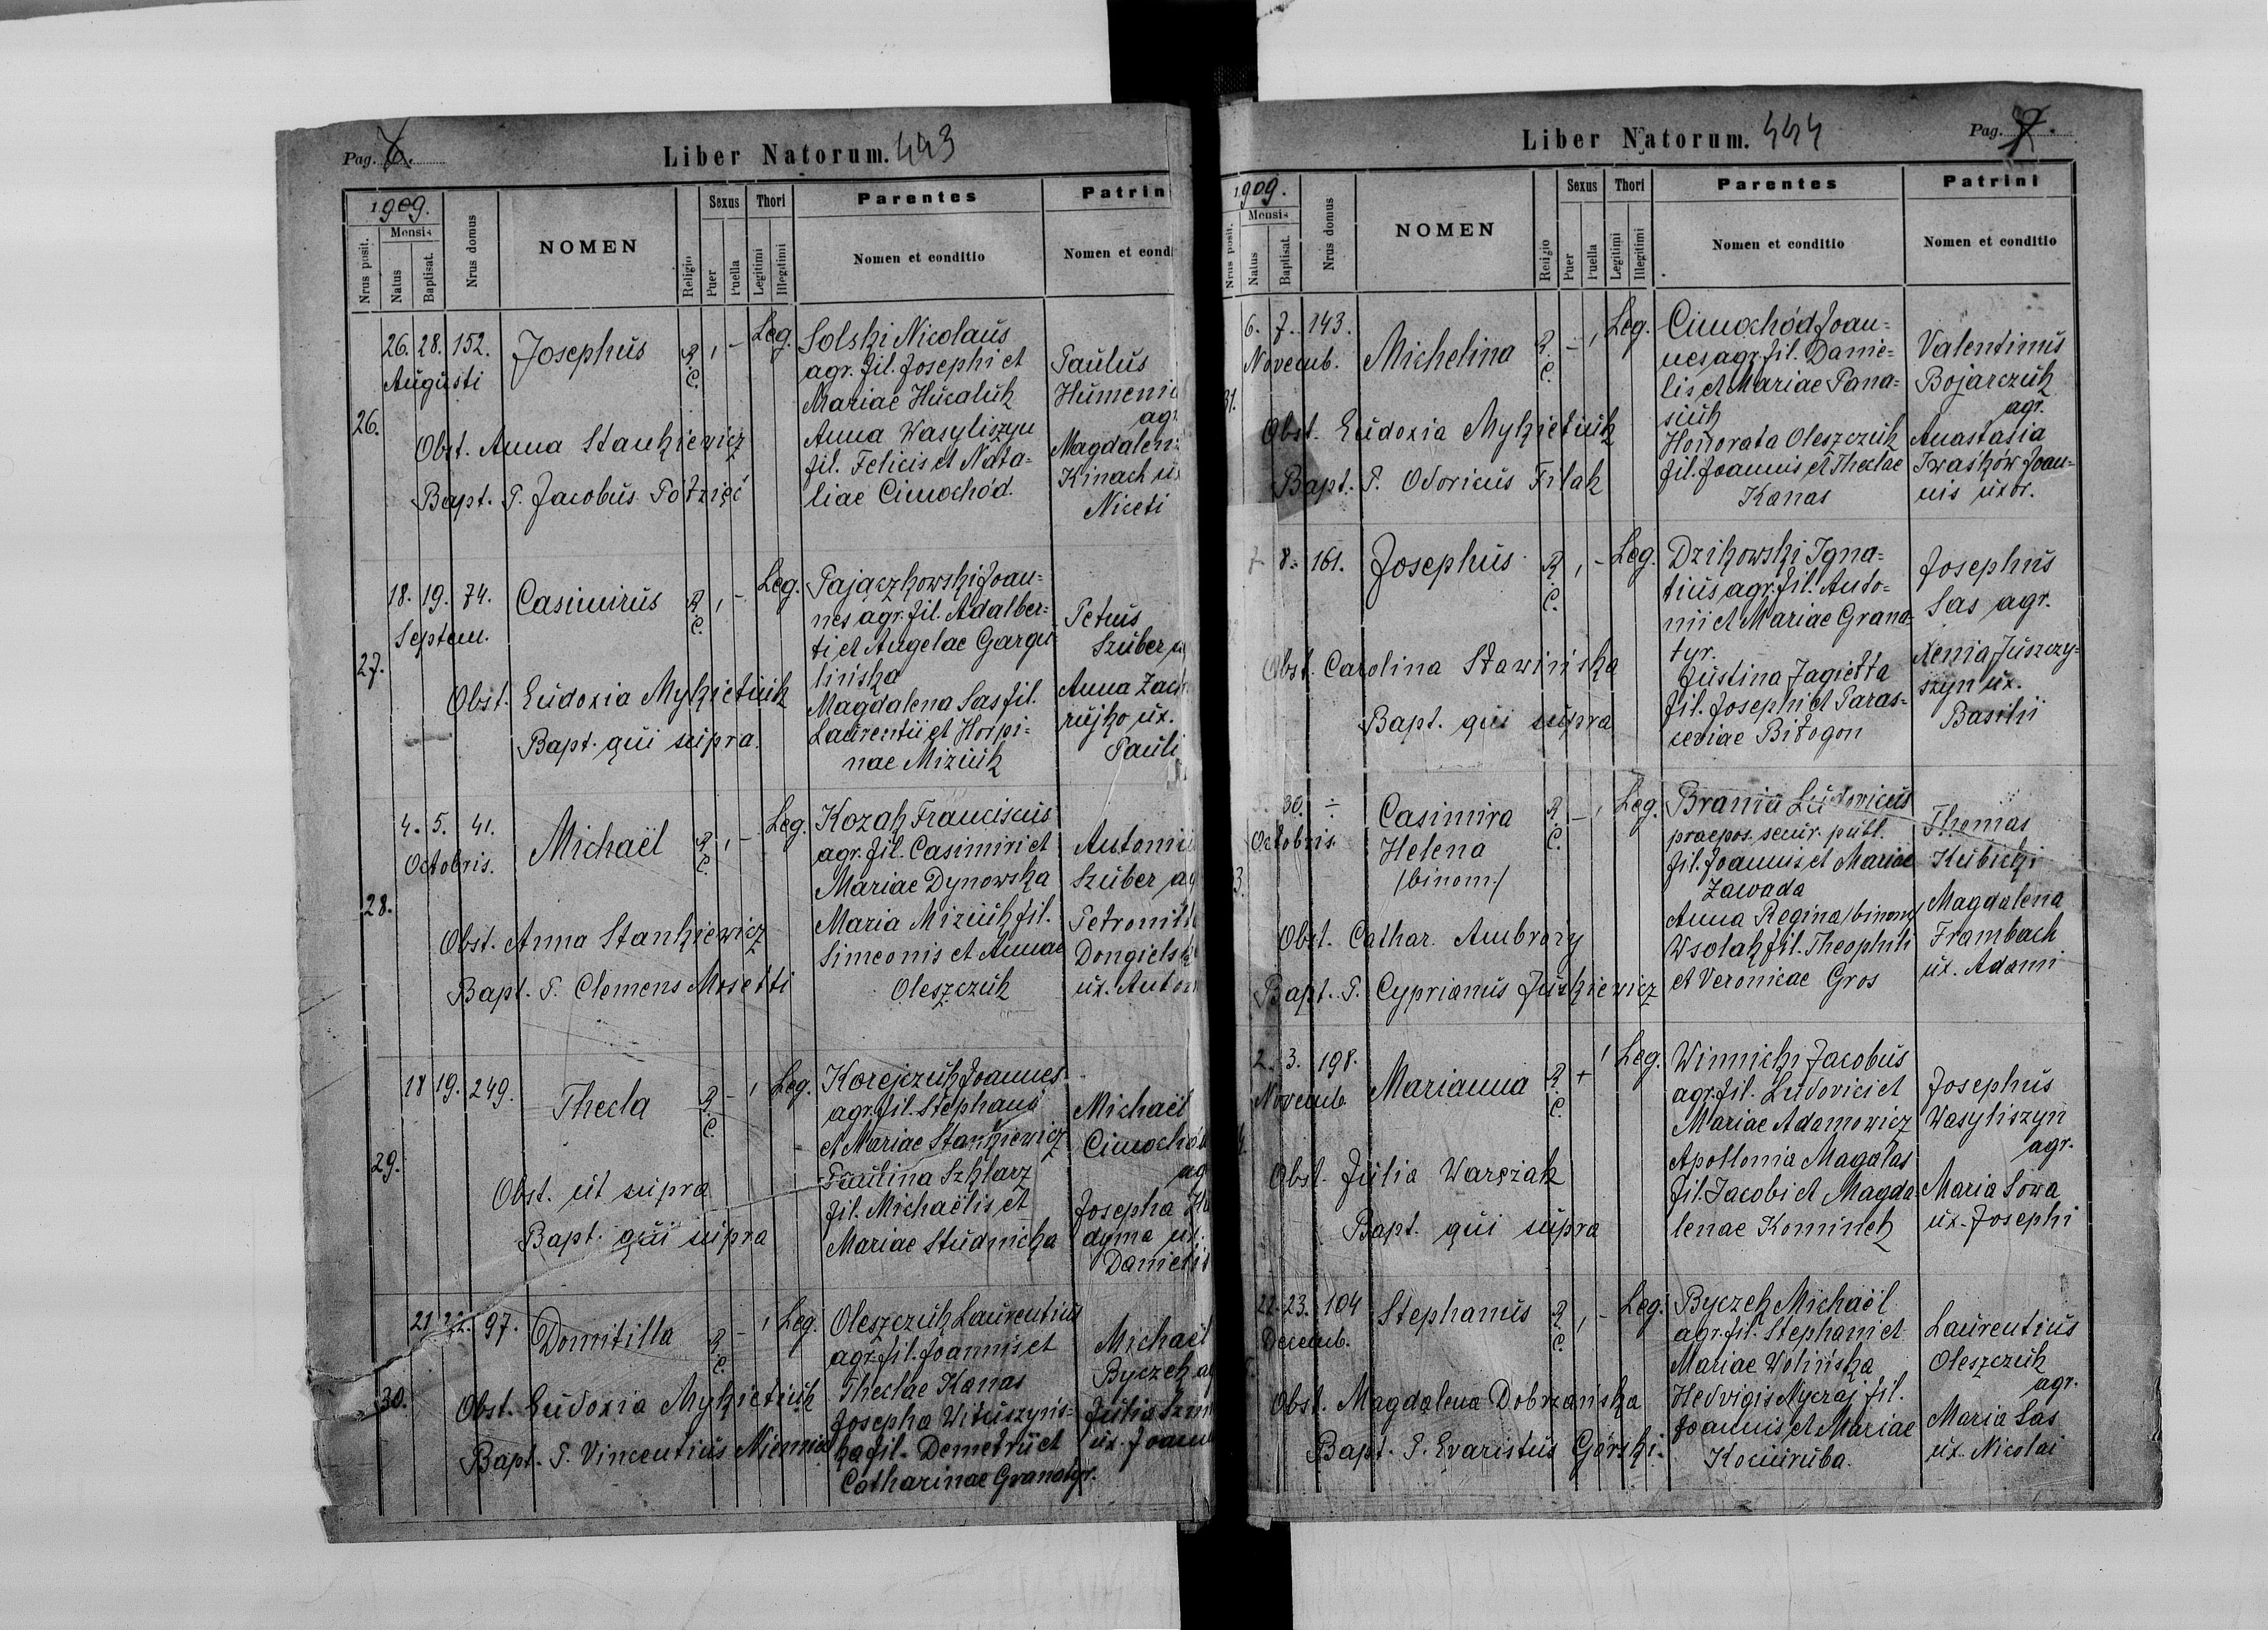 Pag. 6.
Liber Natorum. 443
1909.
Mensis
Nrus posit.
Natus
Baptisat.
Nrus domus
NOMEN
Religio
Sexus
Puer
Puella
Thori
Legitimi
Illegitimi
Parentes
Nomen et conditio
Patrin
Nomen et condi
26.
26. 28. 152.
Augusti
Josephus
R. C.
1 -
Leg.
Solski Nicolaus
agr. fil. Josephi et
Mariae Hucaluk
Anna Wasyliszyn
fil. Felicis et Nata=
liae Cimochód.
Paulus
Humeni
agr.
Magdalen
Kinach ux
Niceti
Obst. Anna Stankiewicz
Bapt. P. Jacobus Półzięć
27.
18. 19. 74.
Septem.
Casimirus
R. C.
1 -
Leg.
Pajączkowski Joan=
nes agr. fil. Adalber=
ti et Angelae Gargu
lińska
Magdalena Sas fil.
Laurentii et Horpi=
nae Miziuk
Petrus
Szuber
Anna Zach
rujko ux.
Pauli
Obst. Eudoxia Mykietiuk
Bapt. qui supra.
28.
4. 5. 41.
Octobris.
Michaël
R. C.
1 -
Leg.
Kozak Franciscus
agr. fil. Casimiri et
Mariae Dynowska
Maria Miziuk fil.
Simeonis et Annae
Oleszczuk
Antonii
Szuber ag
Petronill
Dongielsk
ux. Anton
Obst. Anna Stankiewicz
Bapt. P. Clemens Mosetti
29.
18 19. 249.
Thecla
R. C.
- 1
Leg.
Korejczuk Joannes
agr. fil. Stephani
et Mariae Stankiewicz
Paulina Szklarz
fil. Michaëlis et
Mariae Studnicka
Michaël
Cimochód
ag
Josepha
dyma ux.
Danielis
Obst. ut supra
Bapt. qui supra
30.
21 22. 97.
Domitilla
R. C.
- 1
Leg.
Oleszczuk Laurentius
agr. fil. Joannis et
Theclae Kanas
Josepha Wituszyńs=
ka fil. Demetrii et
Catharinae Granatyr.
Michaël
Byczek ag
Julia Szm
ux. Joann
Obst. Eudoxia Mykietiuk
Bapt. P. Vincentius Niemiec
Liber Natorum. 444
Pag. 7.
1909.
Mensis
Nrus posit.
Natus
Baptisat.
Nrus domus
NOMEN
Religio
Sexus
Puer
Puella
Thori
Legitimi
Illegitimi
Parentes
Nomen et conditio
Patrini
Nomen et conditio
31.
6. 7. 143.
Novemb.
Michelina
R. C.
- 1
Leg.
Cimochód Joan=
nes agr. fil. Danie=
lis et Mariae Pana=
siuk
Honorata Oleszczuk
fil. Joannis et Theclae
Kanas
Valentinus
Bojarczuk
agr.
Anastasia
Iwaśków Joan=
nis uxor.
Obst. Eudoxia Mykietiuk
Bapt. P. Odoricus Filak
7 8. 161.
Josephus
R. C.
1 -
Leg.
Dzikowski Igna=
tius agr. fil. Anto=
nii et Mariae Grana=
tyr.
Justina Jagiełła
fil. Josephi et Paras=
ceviae Biłogon
Josephus
Sas agr.
Xenia Juszczy=
szyn ux.
Basilii
Obst. Carolina Stawińska
Bapt. qui supra
3.
5. 30. ÷
Octobris
Casimira
Helena
/binom./
R. C.
- 1
Leg.
Brania Ludovicus
praepos. secur. publ.
fil. Joannis et Mariae
Zawada
Anna Regina /binom/
Wsolak fil. Theophili
et Veronicae Gros
Thomas
Kubicki
Magdalena
Frambach
ux. Adami
Obst. Cathar. Ambroży
Bapt. P. Cyprianus Juskiewicz
2. 3. 198.
Novemb.
Marianna
R. C.
+ 1
Leg.
Winnicki Jacobus
agr. fil. Ludovici et
Mariae Adamowicz
Apollonia Magałas
fil. Jacobi et Magda=
lenae Kominek
Josephus
Wasyliszyn
agr.
Maria Sowa
ux. Josephi
Obst. Julia Warszak
Bapt. qui supra
22. 23. 104
Decemb.
Stephanus
R. C.
1 -
Leg.
Byczek Michaël
agr. fil. Stephani et
Mariae Wolińska
Hedvigis Myczaj fil.
Joannis et Mariae
Kociuruba.
Laurentius
Oleszczuk
agr.
Maria Sas
ux. Nicolai
Obst. Magdalena Dobrzańska
Bapt. P. Evaristus Górski.